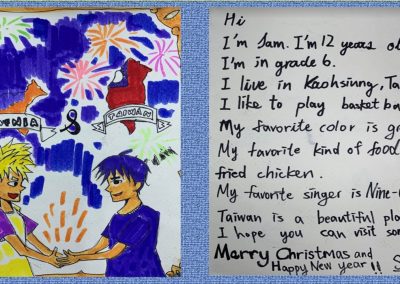 &
TAIWAN
Hi
I'm Sam. I'm 12 years
I'm in grade 6.
I live in Kaohsiung,
I like to play basket
My favorite color is
My favorite kind of food
fried chicken.
My favorite singer is Nine-
Taiwan is a beautiful
I hope you can visit
Marry Christmas and
Happy New year!!